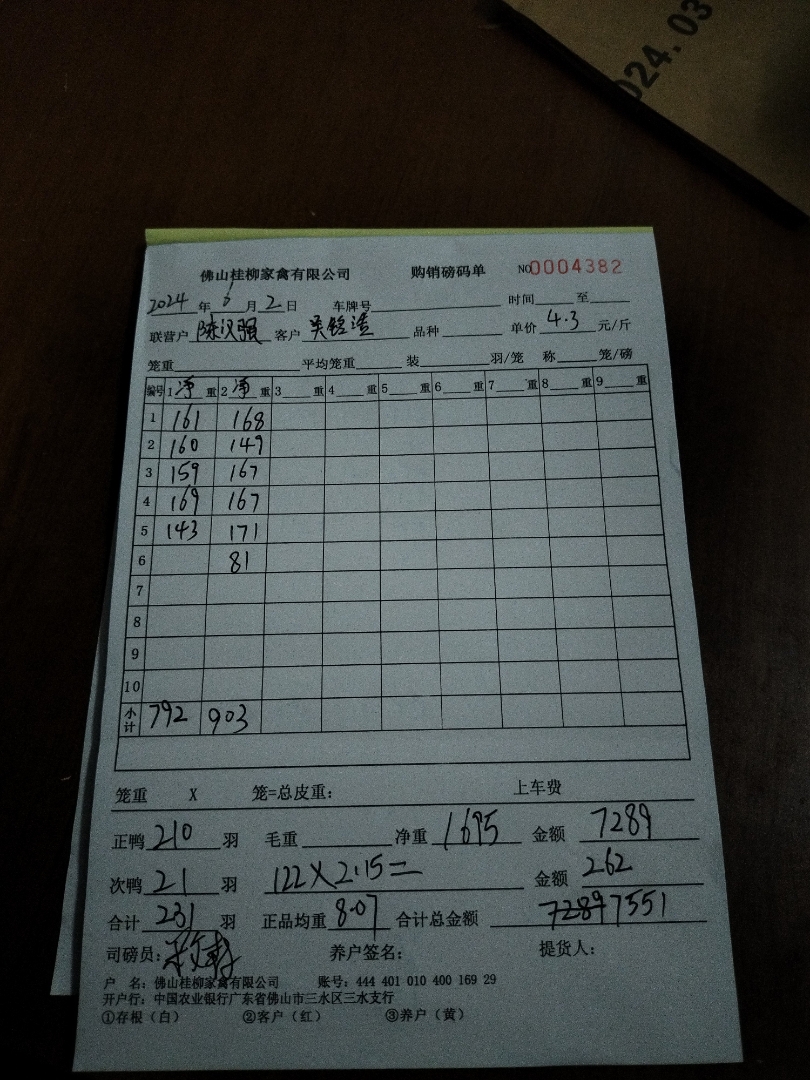 024.03
佛山桂柳家禽有限公司 购销磅码单 NO0004382
2024 年 6 月 2 日 车牌号 时间 至
联营户 陈汉强 客户 吴铭 品种 单价 4.3 元/斤
笼重 平均笼重 装 羽/笼 称 笼/磅
编号 1 净 重 2 净 重 3 重 4 重 5 重 6 重 7 重 8 重 9 重
1 161 168
2 160 149
3 159 167
4 169 167
5 143 171
6 81
7
8
9
10
小计 792 903
笼重 X 笼=总皮重: 上车费
正鸭 210 羽 毛重 净重 1695 金额 7289
次鸭 21 羽 122×2.15= 金额 262
合计 231 羽 正品均重 8.07 合计总金额 7289 7551
司磅员: 养户签名: 提货人:
户 名: 佛山桂柳家禽有限公司 账号: 444 401 010 400 169 29
开户行: 中国农业银行广东省佛山市三水区三水支行
①存根(白) ②客户(红) ③养户(黄)